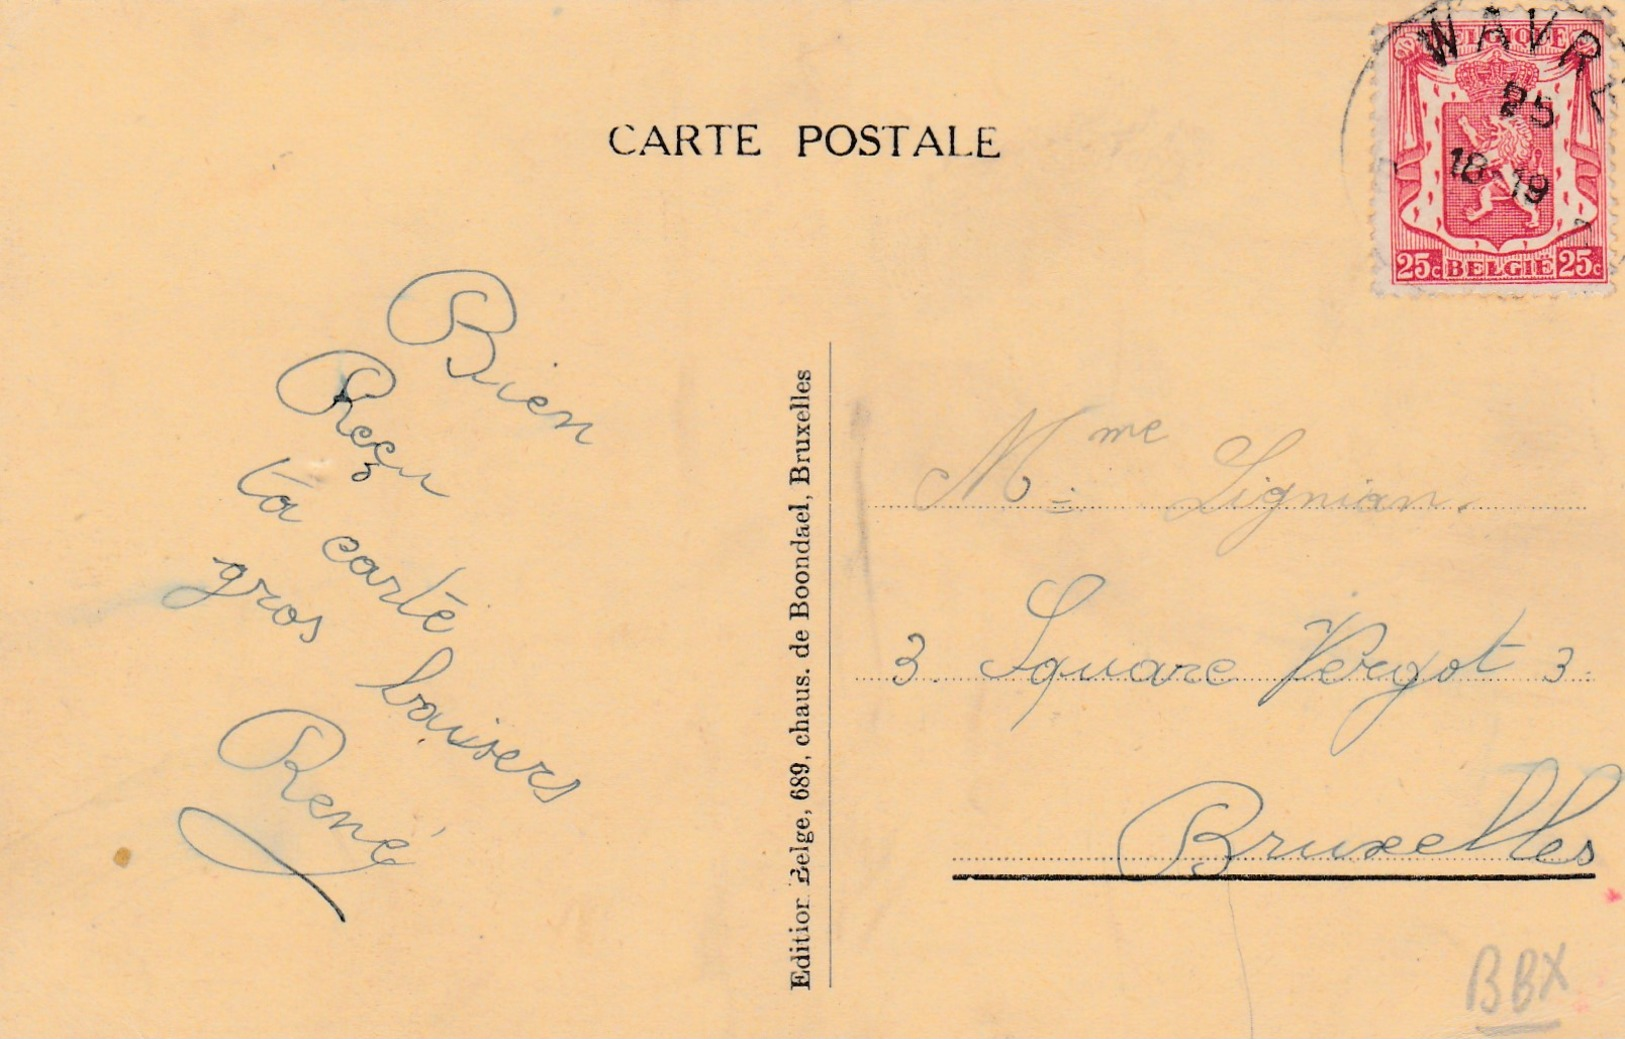 CARTE POSTALE
WAVRE
25
18-19
BELGIQUE
25c BELGIE 25c
Bien
Reçu
ta carte
gros baisers
René
Edition Belge, 689, chaus. de Boondael, Bruxelles
Mme Lignian.
3. Square Vergot 3.
Bruxelles
BBX